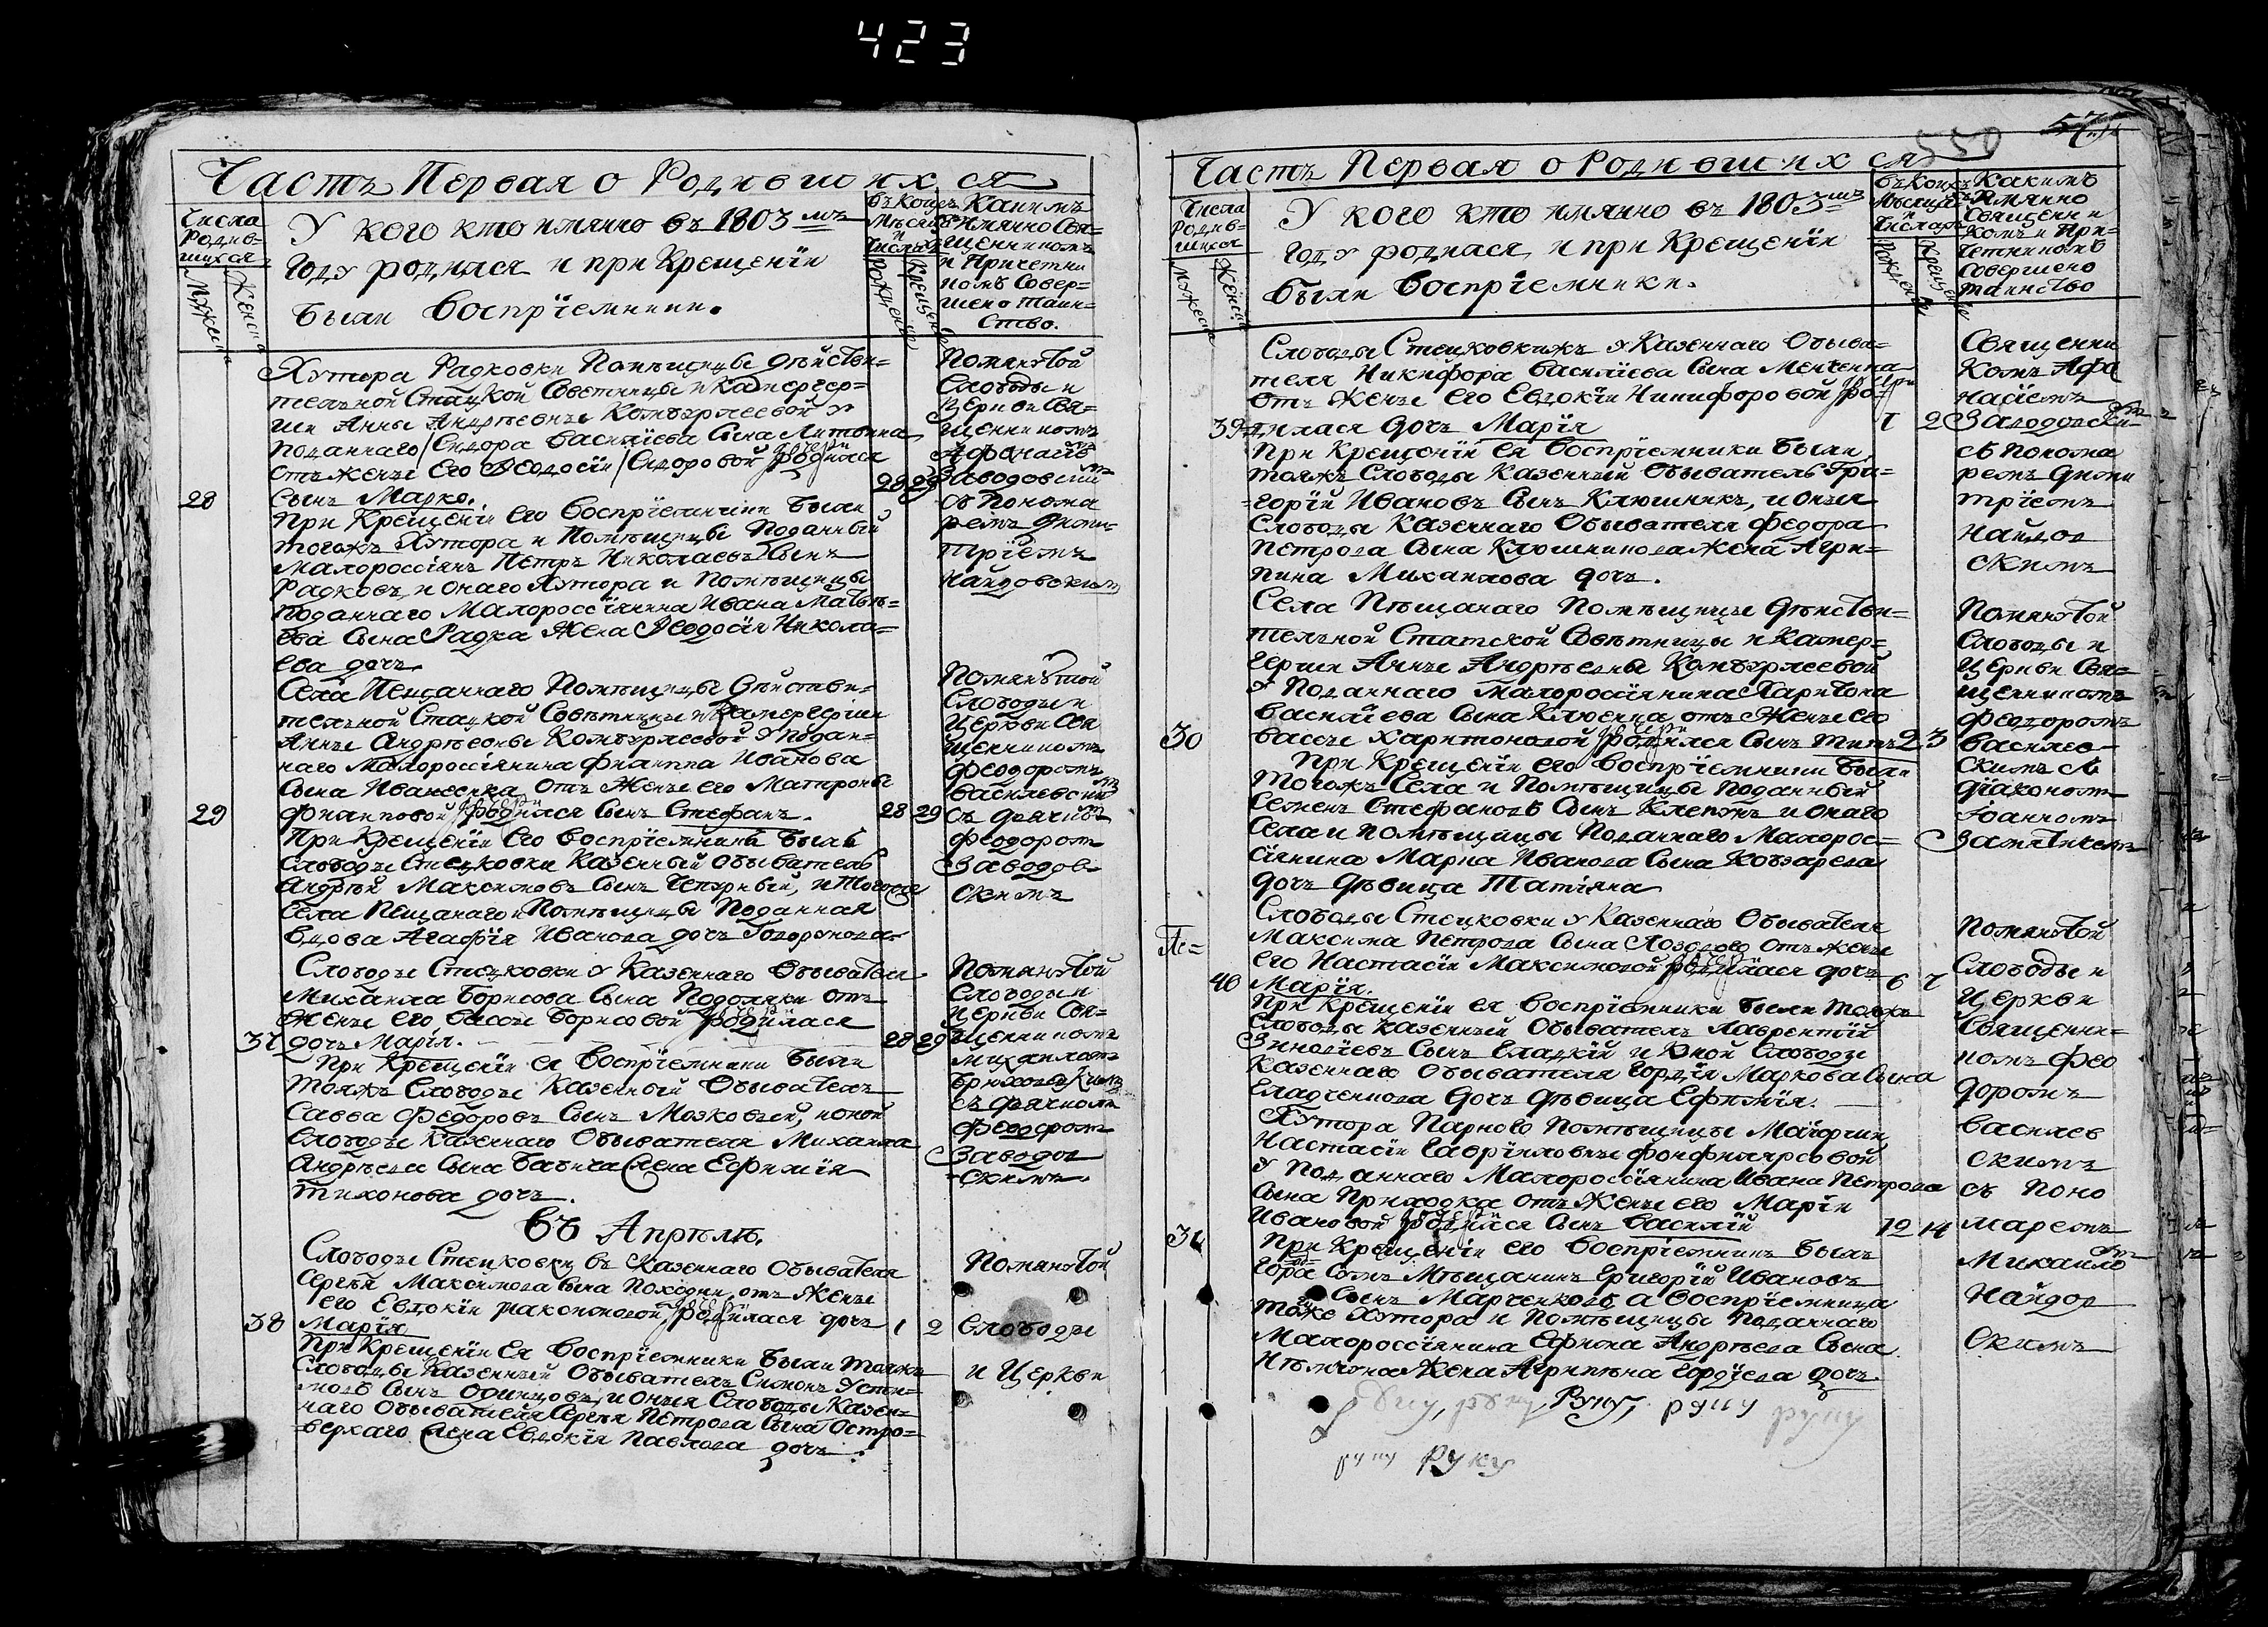 423
Часть Первая о Родившихся
Числа Родив=шихся
Мужеска
Женска
У кого кто имянно въ 1803мъ
Году родился и при Крещенiи
были восприемники.
въ Коихъ Мѣсяцѣ и Числахъ
Рожденiе
Крещенiе
Какимъ
Имянно Свя=
щенникомъ
и Причетни
комъ Совер=
шено таин=
ство.
Хутора Радковки Помѣщицы Дѣйстви=
тельной Стацкой Советницы и Камергер=
ши Анны Андрѣевны Комбурлеевой у
поданнаго Сидора Василiева Сына Литвина
отъ жены его Ѳеодосiи Сидоровой родился
28 Сынъ Марко. 28 29
При Крещенiи его восприемники были
тогожъ Хутора и Помѣщицы Поданный
Малороссiянъ Петръ Николаевъ Сынъ
Радковъ, и онаго Хутора и Помѣщицы
поданнаго Малороссiянина Ивана Матвѣ=
ева Сына Радка Жена Ѳеодосiя Никола=
ева дочь.
Помянутой
Слободы и
Церкви Свя=
щенникомъ
Афанасiемъ
Заводовскимъ
съ Понома
ремъ Дими
трiемъ
Найдовскимъ
Села Пещаннаго Помѣщицы Дѣйстви=
тельной Стацкой Совѣтницы и Камергерши
Анны Андрѣевны Комбурлеевой у подан=
наго Малороссiянина Филиппа Иванова
Сына Иваненка отъ Жены его Матроны
29 Филиповой родился Сынъ Стефанъ. 28 29
При Крещенiи его восприемники были
Слободы Стецковки Казенный обыватель
Андрѣй Максимовъ Сынъ Чепурный, и тогожъ
Села Пещанаго и Помѣщицы Поданная
вдова Агафiя Иванова дочь
Помянутой
Слободы и
Церкви Свя
щенникомъ
Феодоромъ
Василевскимъ
съ дячкомъ
Феодоромъ
Заводов=
скимъ
Слободы Стецковки у Казеннаго Обывателя
Михаила Борисова Сына Подоляки отъ
Жены его Васы Борисовой родилася
37 дочь Марiя. 28 29
При Крещенiи ея восприемники были
тояжъ Слободы Казенный Обыватель
Савва Федоровъ Сынъ Мозковый, и оной
Слободы Казеннаго Обывателя Михаила
Андрѣева Сына Бабича Жена Ефимiя
Тихонова дочь.
Помянутой
Слободы и
Церкви Свя=
щенникомъ
Михаиломъ
съ дячкомъ
Феодоромъ
Заводов
скимъ.
Въ Апрѣлѣ.
Слободы Стецковки въ Казеннаго Обывателя
Сергѣя Максимова Сына Походни, отъ Жены
его Евдокiи Максимовой, родилася дочь
38 Марiя 1 2
При Крещенiи ея восприемники были тояжъ
Слободы Казенный Обыватель Симонъ Усти=
мовъ Сынъ Одинцовъ, и оныя Слободы Казен=
наго Обывателя Сергѣя Петрова Сына Остро=
верхаго Жена Евдокiя Павлова дочь.
Помянутой
Слободы
и Церкви
550
Часть Первая о Родившихся
Числа Родив=шихся
Мужеска
Женска
У кого кто имянно въ 1803мъ
Году родился, и при Крещенiи
были восприемники.
въ Коихъ Мѣсяцѣ и Числахъ
Рожденiе
Крещенiе
Какимъ
Имянно
Священни
комъ и При=
четникомъ
Совершено
таинство
Слободы Стецковки у Казеннаго Обыва=
теля Никифора Василiева Сына
отъ Жены его Евдокiи Никифоровой ро=
39 дилася дочь Марiя 1 2
При Крещенiи ея восприемники были,
тояжъ Слободы Казенный Обыватель Гри=
горiй Ивановъ Сынъ Клюшникъ, и оныя
Слободы Казеннаго Обывателя Федора
Петрова Сына Клюшникова Жена Агри=
пина Михаилова дочь.
Священни
комъ Афа
насiемъ
Заводовски=
съ Понома
ремъ Дими
трiемъ
Найдов
скимъ
Села Пѣщанаго Помѣщицы Дѣйстви=
тельной Статской Совѣтницы и Камер=
герши Анны Андрѣевны Комбурлеевой
у Поданнаго Малороссiянина Харитона
Василiева Сына отъ Жены его
30 Васы Харитоновой родился Сынъ Титъ 2 3
При Крещенiи его восприемники были
тогожъ Села и Помѣщицы Поданный
Семенъ Стефановъ Сынъ и онаго
Села и помѣщицы Поданнаго Малорос=
сiянина Марка Иванова Сына Кобзарева
дочь дѣвица Татiяна
Помянутой
Слободы и
Церкви Свя=
щенникомъ
Феодоромъ
Василев=
скимъ съ
дiякономъ
Iоанномъ
Слободы Стецковки у Казеннаго Обывателя
Максима Петрова Сына Лозового отъ жены
его Настасiи Максимовой родилася дочь
40 Марiя. 6 7
При Крещенiи ея восприемники были тояжъ
Слободы Казенный Обыватель Лаврентiй
Зиновiевъ Сынъ Гладкiй и оной Слободы
Казеннаго Обывателя Гордiя Маркова Сына
Гладченкова дочь дѣвица Ефимiя.
Помянутой
Слободы и
Церкви
Священни=
комъ Фео
доромъ
Василев
скимъ
съ Поно
маремъ
Михаило
Найдов
скимъ
Хутора Парного Помѣщицы Маiорши
Настасiи Гавриловны
у Поданнаго Малороссiянина Ивана Петрова
Сына Приходка отъ Жены его Марiи
31 Ивановой родился Сынъ Василiй 12 14
При Крещенiи его восприемникъ былъ
города Сумъ Мѣщанинъ Григорiй Ивановъ
Сынъ Марченковъ а восприемница
тогоже Хутора и Помѣщицы Поданнаго
Малороссiянина Ефима Андрѣева Сына
Жена Агрипѣна Гордѣева дочь
руку, Руку, руку руку
руку руку